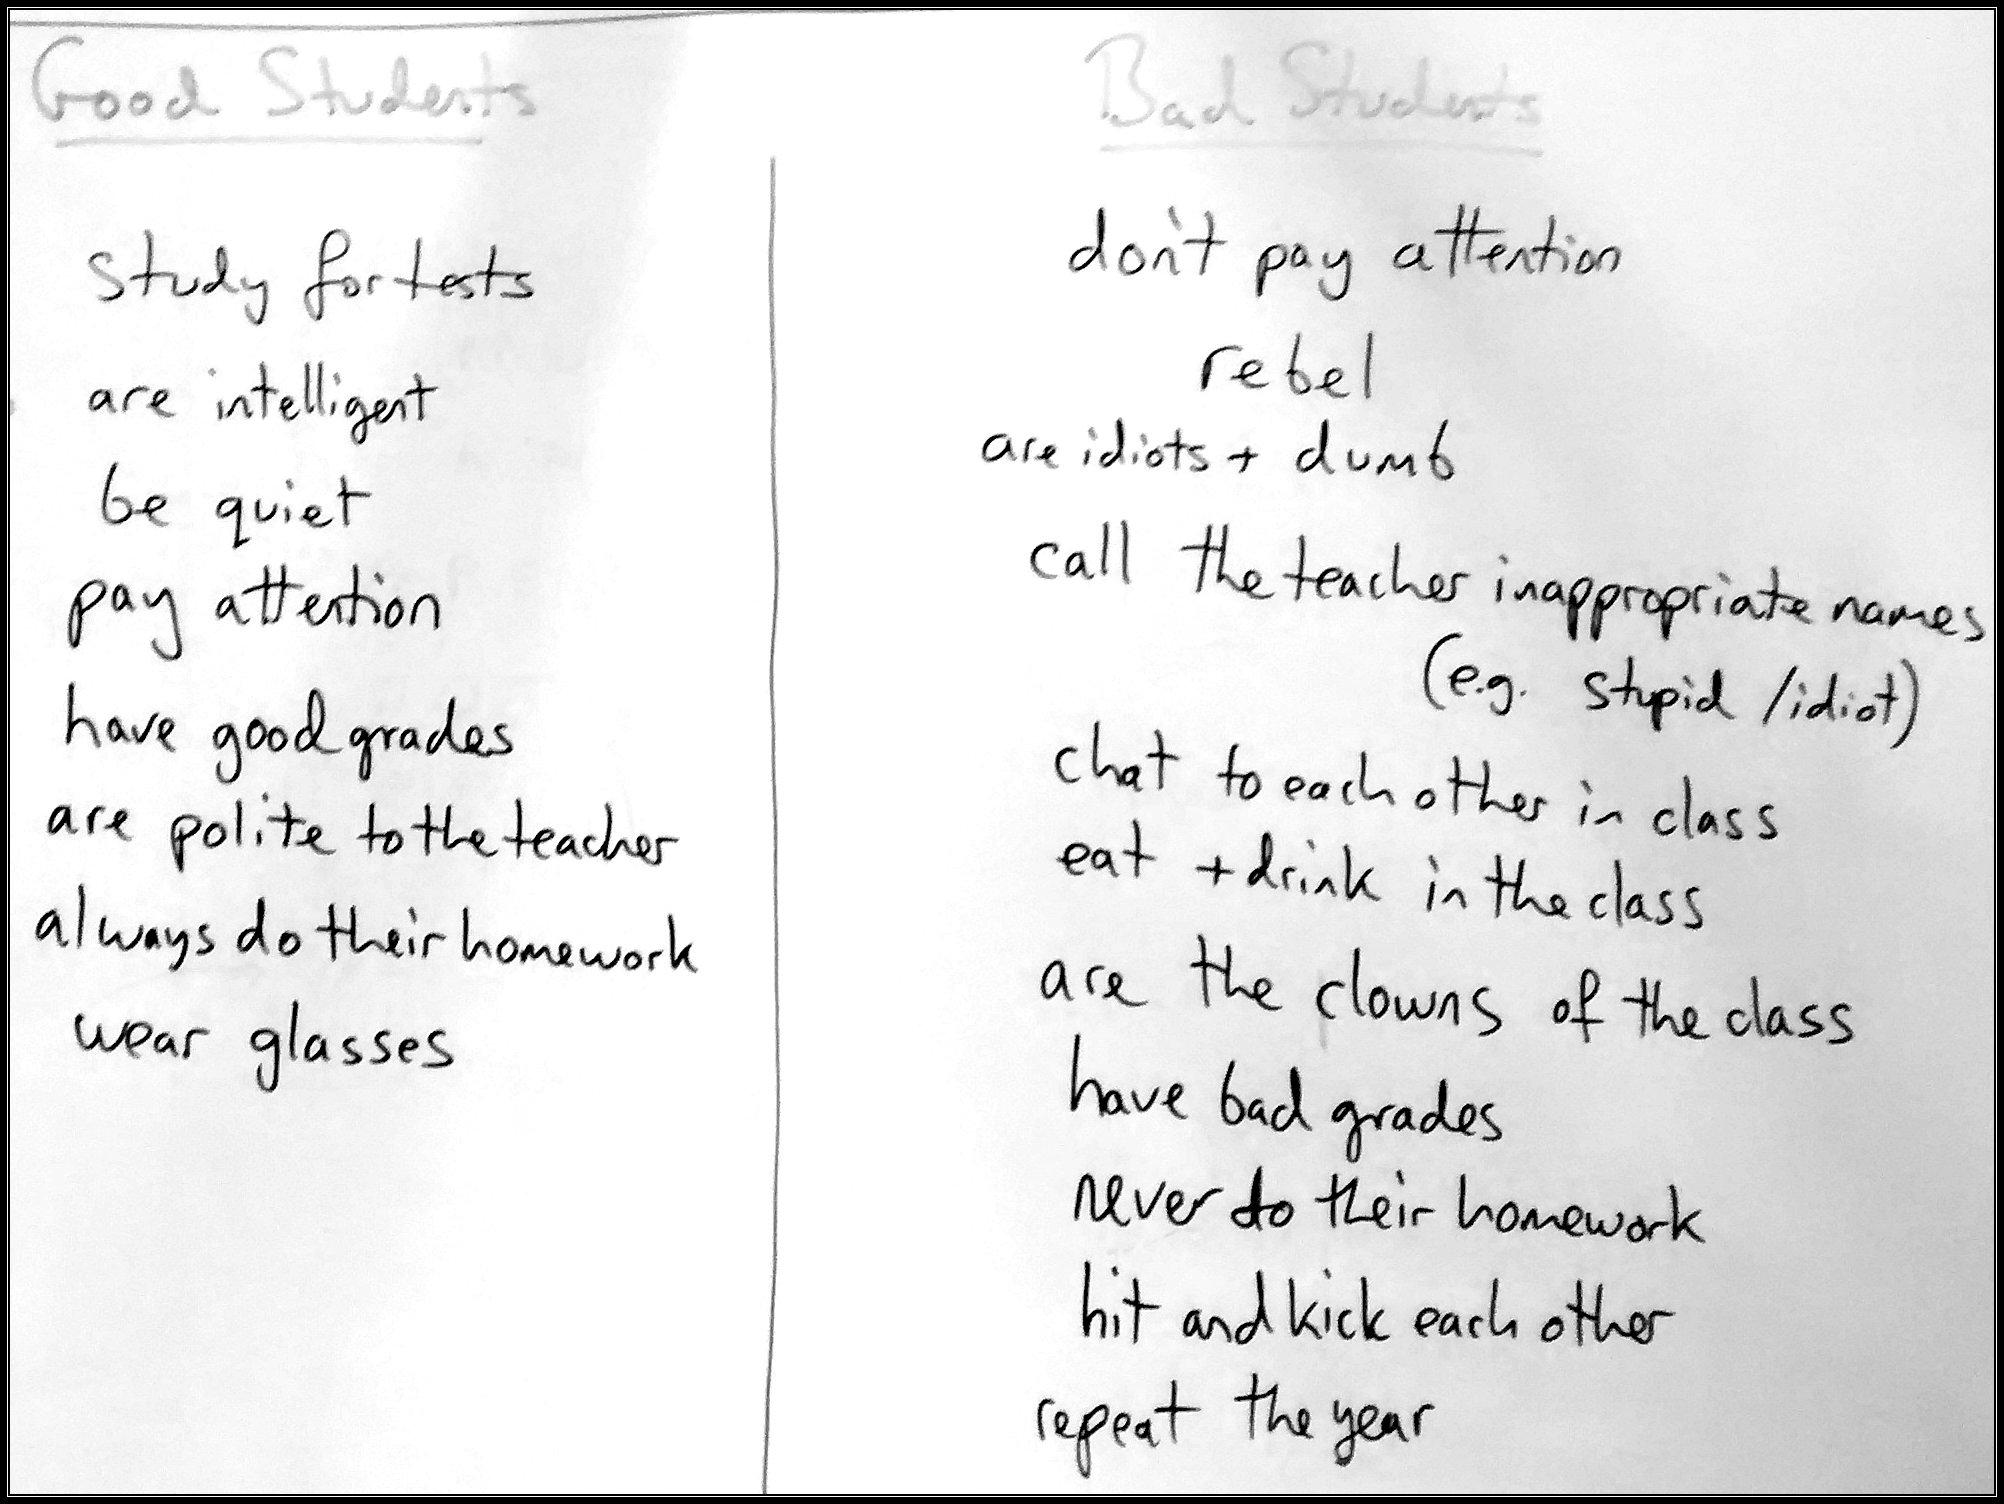 Good Students
study for tests
are intelligent
be quiet
pay attention
have good grades
are polite to the teacher
always do their homework
wear glasses
Bad Students
don't pay attention
rebel
are idiots + dumb
call the teacher inappropriate names
(e.g. stupid /idiot)
chat to each other in class
eat + drink in the class
are the clowns of the class
have bad grades
never do their homework
hit and kick each other
repeat the year